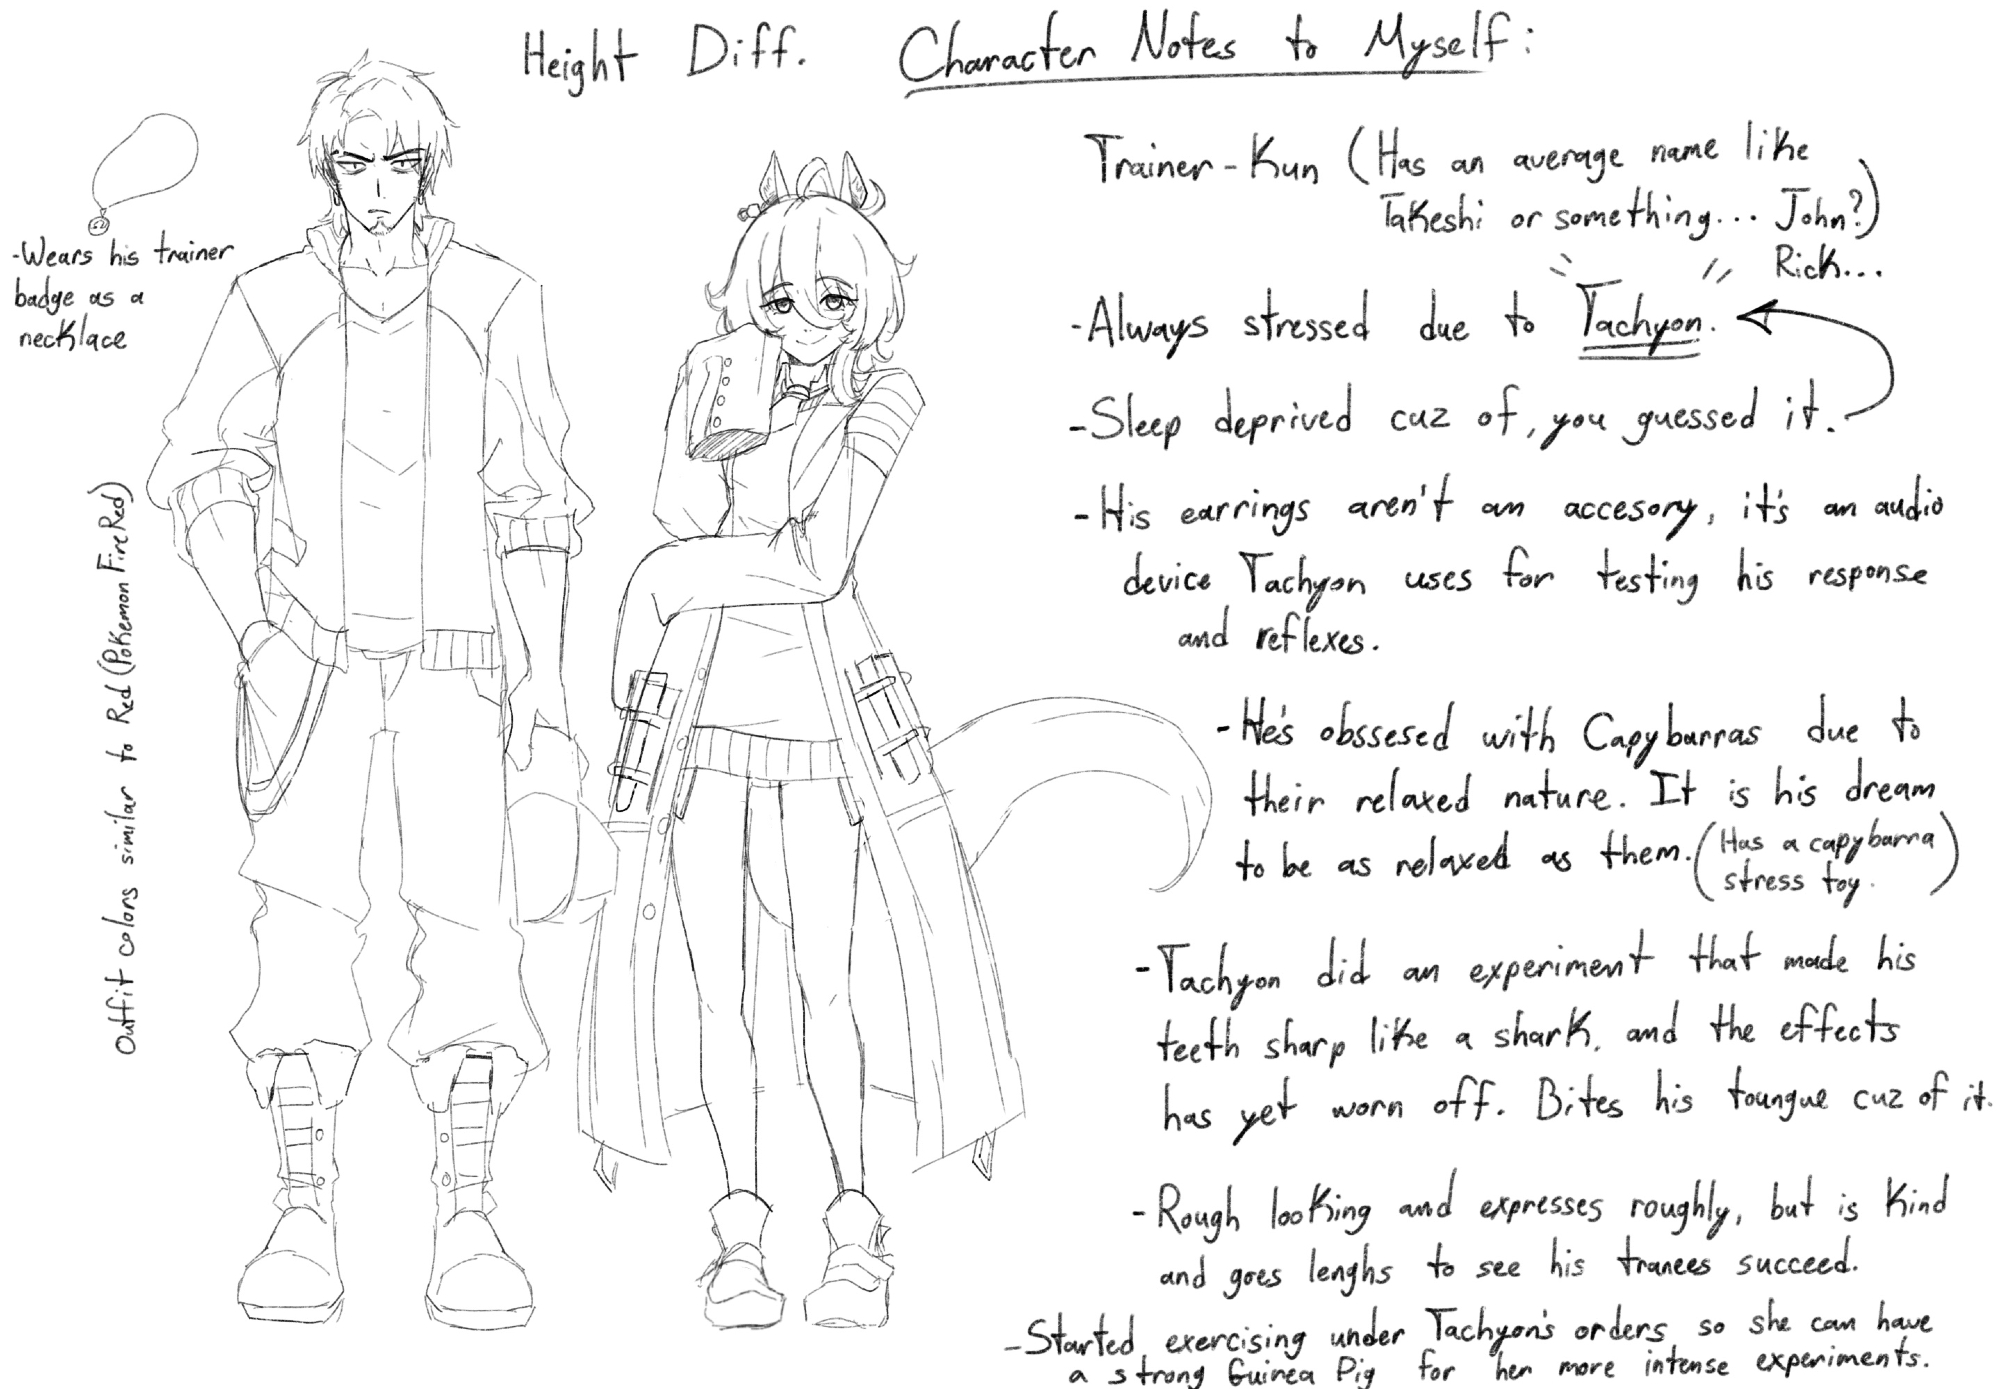 Height Diff.
Character Notes to Myself:
-Wears his trainer
badge as a
necklace
Outfit colors similar to Red (Pokemon FireRed)
Trainer-Kun (Has an average name like
Takeshi or something... John?)
Rick...
-Always stressed due to Tachyon.
-Sleep deprived cuz of, you guessed it.
-His earrings aren't an accesory, it's an audio
device Tachyon uses for testing his response
and reflexes.
-He's obssesed with Capybarras due to
their relaxed nature. It is his dream
to be as relaxed as them. (Has a capybarra
stress toy.)
-Tachyon did an experiment that made his
teeth sharp like a shark, and the effects
has yet worn off. Bites his toungue cuz of it.
-Rough looking and expresses roughly, but is kind
and goes lenghs to see his tranees succeed.
-Started exercising under Tachyon's orders so she can have
a strong Guinea Pig for her more intense experiments.